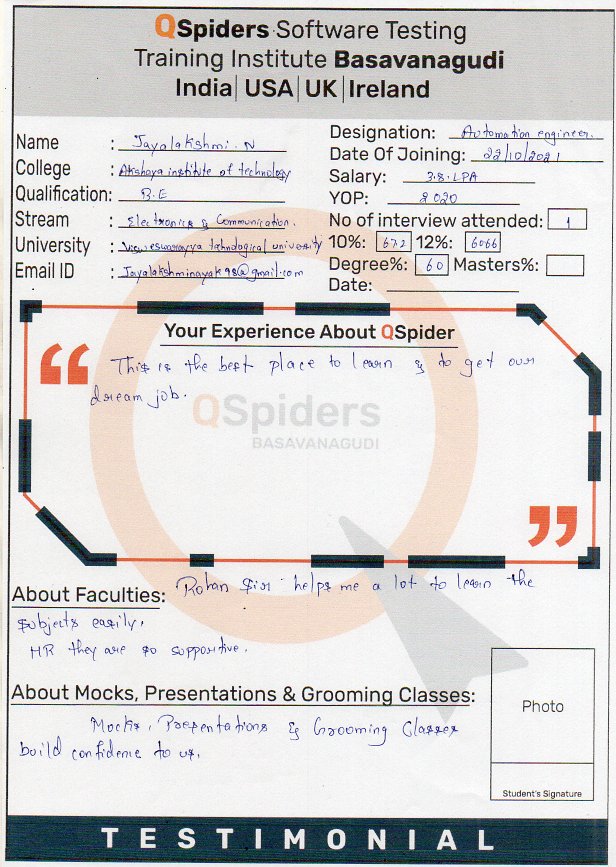 QSpiders Software Testing
Training Institute Basavanagudi
India | USA | UK | Ireland
Name : Jayalakshmi. N
College : Akshaya institute of technology
Qualification: B.E
Stream : Electronics & Communication.
University : Visweswarayya tehnological university
Email ID : Jayalakshminayak98@gmail.com
Designation: Automation engineer.
Date Of Joining: 22/10/2021
Salary: 3.8.LPA
YOP: 2020
No of interview attended: 1
10%: 672 12%: 6066
Degree%: 60 Masters%:
Date:
Your Experience About QSpider
This is the best place to learn & to get our
dream job.
QSpiders
BASAVANAGUDI
About Faculties: Rohan Sir helps me a lot to learn the
subjects easily,
HR they are so supportive.
About Mocks, Presentations & Grooming Classes:
Mocks, Presentations & Grooming Classes
build confidence to us.
Photo
Student's Signature
TESTIMONIAL